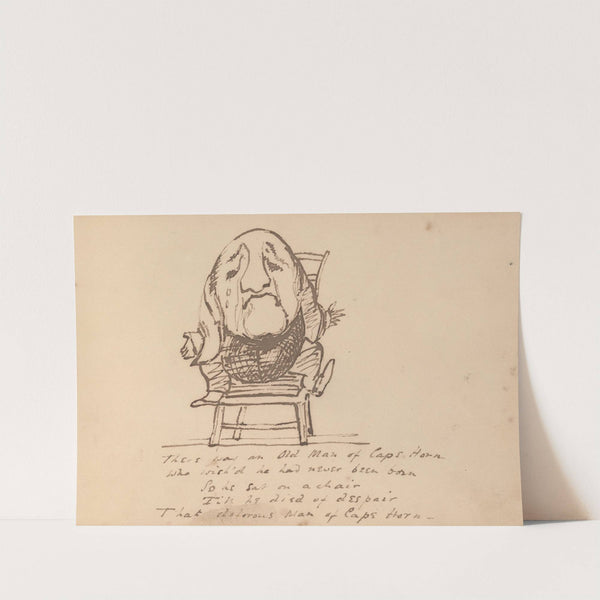 There was an Old Man of Cape Horn
Who wish'd he had never been born
So he sat on a chair
Till he died of despair
That dolorous Man of Cape Horn_